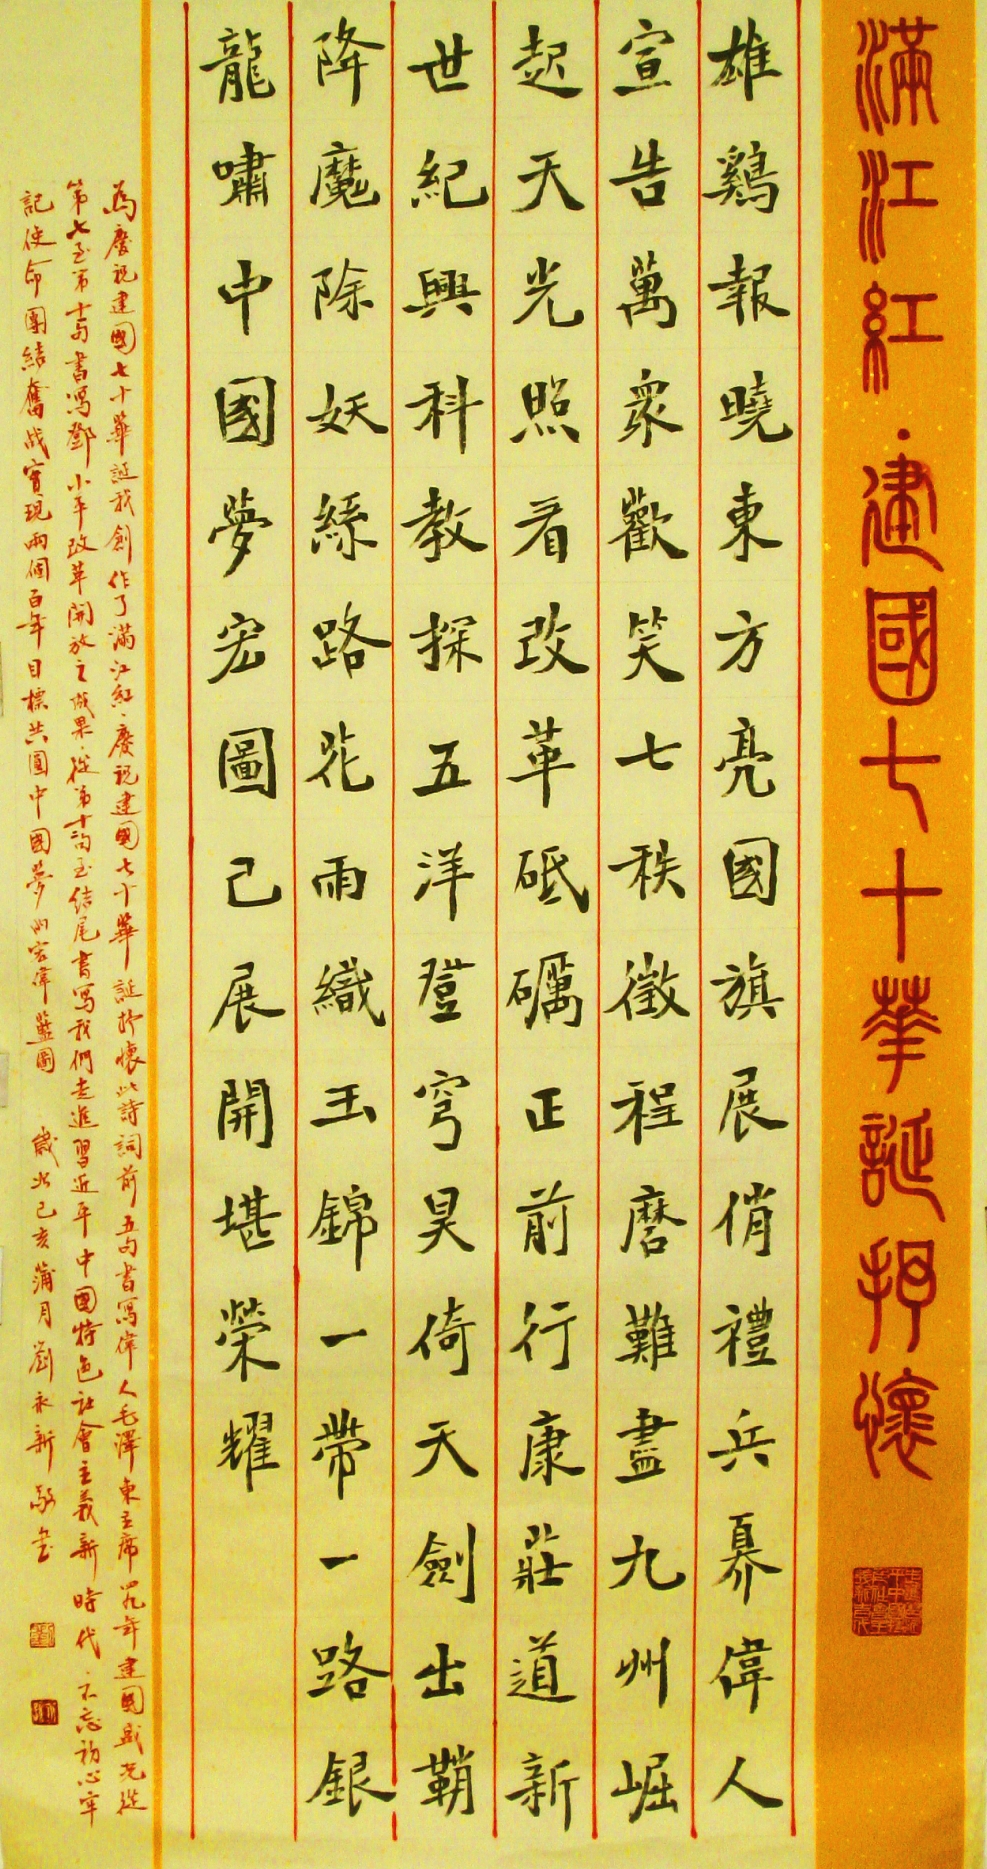 滿江紅·建國七十華誕抒懷
雄鷄報曉東方亮國旗展俏禮兵募偉人
宣告萬衆歡笑七秩徵程磨難盡九州崛
起天光照看改革砥礪正前行康莊道新
世紀興科教探五洋登穹昊倚天劍出鞘
降魔除妖絲路花雨織玉錦一帶一路銀
龍嘯中國夢宏圖己展開堪榮耀
為慶祝建國七十華誕我創作了滿江紅·慶祝建國七十華誕抒懷此詩詞前五句書寫偉人毛澤東主席四九年建國盛况從
第七至第十句書寫鄧小平改革開放之成果·從第十一句至結尾書寫我們走進習近平中國特色社會主義新時代·不忘初心牢
記使命團結奮战實現兩個百年目標共圓中國夢的宏偉藍圖 歲次己亥蒲月劉永新敬書